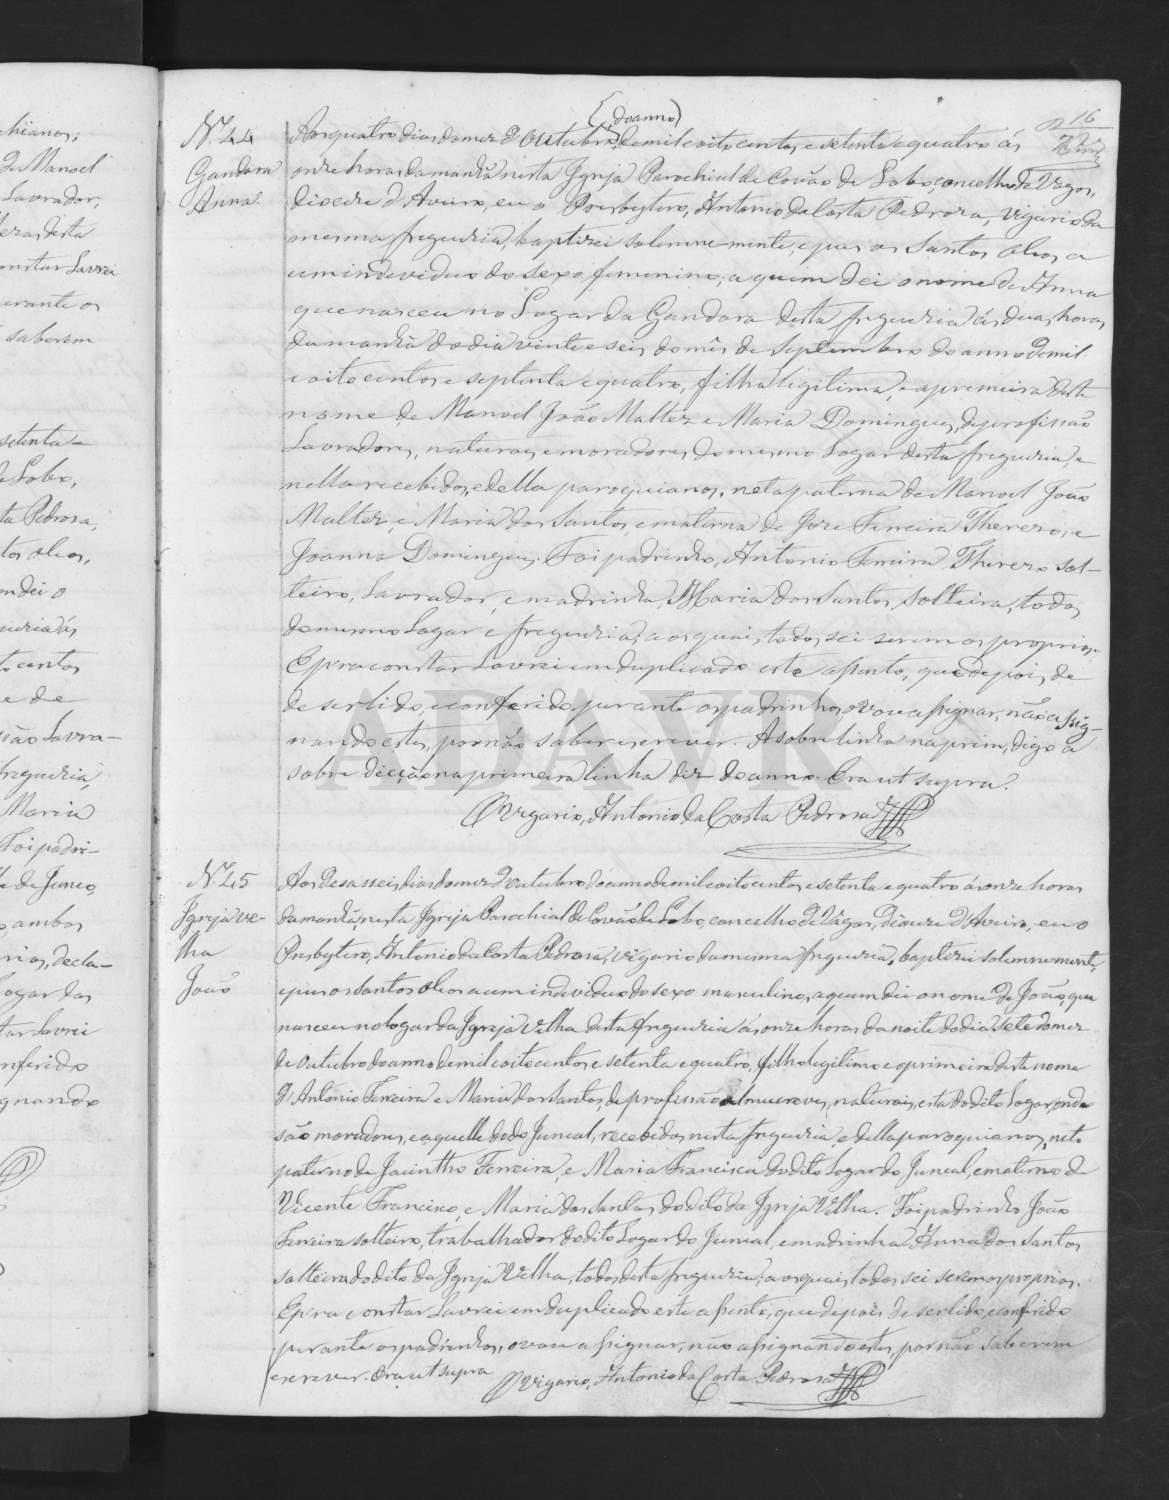 16
(do anno)
Nº 44
Gandara
Anna
Aos quatro dias do mez d'Outubro, de mil oito centos, e setenta e quatro ás
onze horas da manhã nesta Igreja Parochial de Covão de Lobo, concelho de Vagos,
Diocese d'Aveiro, eu o Presbytero, Antonio da Costa Pedrosa, vigario da
mesma freguezia, baptizei solemne-mente, e puz os Santos oleos a
um individuo do sexo femenino, a quem dei o nome de Anna
que nasceu no Logar da Gandara desta freguezia ás duas horas
da manhã do dia vinte e seis do mês de Septembro do anno de mil
e oito centos e septenta e quatro, filha legitima, e a premeira deste
nome de Manoel João Maltez e Maria Domingues, de profissão
Lavradores, naturaes e moradores do mesmo Logar desta freguezia, e
nella recebidos, e della paroquianos, neta paterna de Manoel João
Maltez, e Maria dos Santos, e materna de Joze Ferreira Therezo, e
Joanna Domingues. Foi padrinho, Antonio Ferreira Therezo sol-
teiro, Lavrador, e madrinha, Maria dos Santos, solteira, todos
do mesmo Logar e freguezia, aos quais todos sei serem os proprios.
E pra constar Lavrei em duplicado este assento, que depois de
de ser lido, e conferido, perante os padrinhos, o vou assignar, não assig-
nando estes, por não saber escrever. A sobre linha na prim, digo a
sobre dicção na primeira linha diz do anno. Era ut supra.
O Vigario, Antonio da Costa Pedrosa
Nº 45
Igreja ve-
lha
João
Aos desasseis dias do mez d'outubro do anno de mil oito centos e setenta e quatro ás onze horas
da manhã, nesta Igreja Parochial de Covão de Lobo, concelho de Vagos, Diocese d'Aveiro, eu o
Presbytero, Antonio da Costa Pedrosa, vigario da mesma freguezia, baptizei solemnemente,
e puz os santos oleos a um individuo do sexo masculino, a quem dei o nome de João, que
nasceu no logar da Igreja Velha desta freguezia ás onze horas da noite do dia sete do mez
de outubro do anno de mil e oito centos e setenta e quatro, filho legitimo e o primeiro deste nome
d'Antonio Ferreira e Maria dos Santos, de profissão almucreves, naturais, esta do dito Logar, onde
são moradores, e aquelle do do Juncal, recebidos nesta freguezia e della paroquianos, neto
paterno de Jacintho Ferreira, e Maria Francisca do dito Logar do Juncal, e materno de
Vicente Francisco, e Maria dos Santos do dito da Igreja Velha. Foi padrinho João
Ferreira solteiro, trabalhador do dito Logar do Juncal, e madrinha Anna dos Santos
solteira do dito da Igreja Velha, todos desta freguezia, aos quais todos sei serem os proprios.
E pra constar Lavrei em duplicado este assento, que depois de ser lido, e conferido
perante os padrinhos, o vou assignar, não assignando estes, por não saberem
escrever. Era ut supra O Vigario, Antonio da Costa Pedrosa
ADAVR